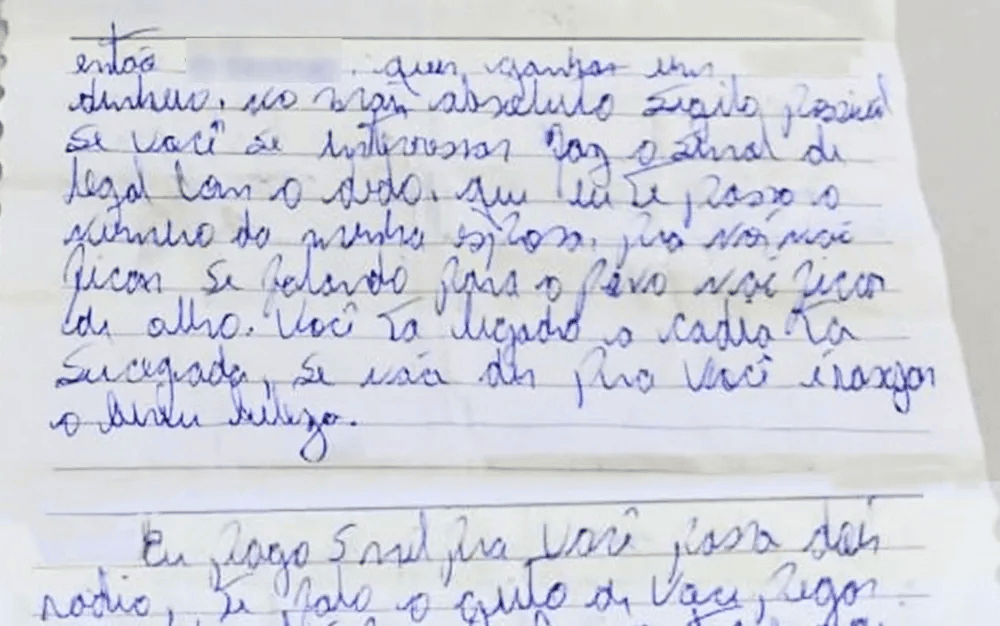 então quer ganhar um
dinheiro. no mais absoluto sigilo
Se você se interessar faz o sinal de
legal com o dedo. que eu te passo o
número da minha esposa, pra nós não
ficar se falando para o povo não ficar
de olho. Você ta ligado a cadea ta
sucegada, se não der pra você é raxgar
o beleza.
Eu pago 5 mil pra você passa dois
radio, te falo o geito de você pegar.